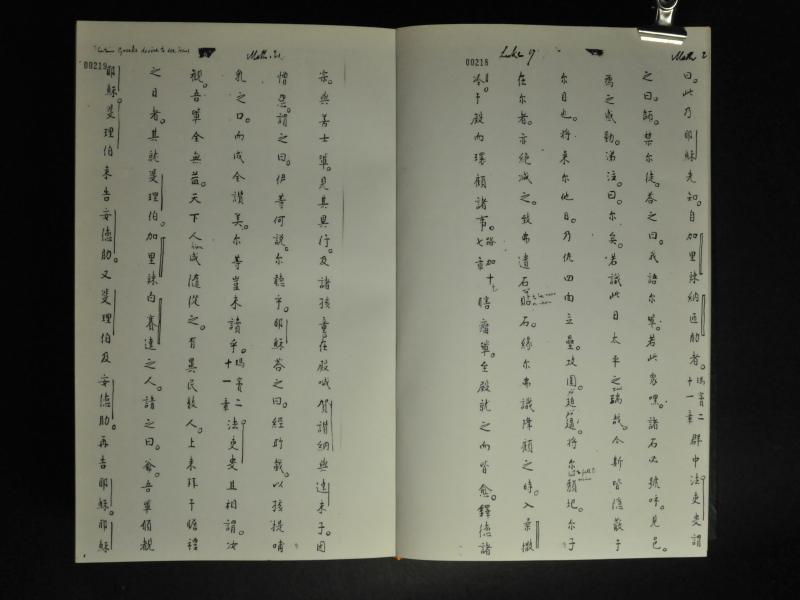 Math 2
Luke 19
00218
曰。此乃耶穌先知。自加里辣納匝肋者。瑪竇二十一章群中法吏叟謂
之曰。師。禁尔徒。答之曰。我語尔等。若此衆嘿。諸石必號呼。見邑。
焉之感動。涕泣。曰。尔矣。若識此日太平之瑞哉。今斯皆隱蔽于
尔目也。將來尔他日。乃仇四面立壘。攻圍。廹逼。將尔顛圮。尔子
在尔者。亦絕滅之。致弗遺石貼石。緣尔弗識降顧之時。入京撒
冷。于殿而環顧諸事。路加十九章瞎瘸等。至殿就之而皆愈。鐸德諸
Math. 21.
Certain Greeks desire to see Jesus
00219
宗。與善士等。見其異行。及諸孩童在殿喊賀讚納與達未子。因
憎惡。謂之曰。伊等何說。尔聴乎。耶穌答之曰。經聆哉。以孩提哺
乳之口。而成全讚美。尔等豈未讀乎。瑪竇二十一章法吏叟且相謂。汝
視。吾等全無益。天下人咸隨從之。有異民教人。上来拜于瞻禮
之日者。其就斐理伯。加里辣白賽達之人。請之曰。爺。吾等願覩
耶穌。斐理伯来告安德肋。又斐理伯及安德肋。再告耶穌。耶穌